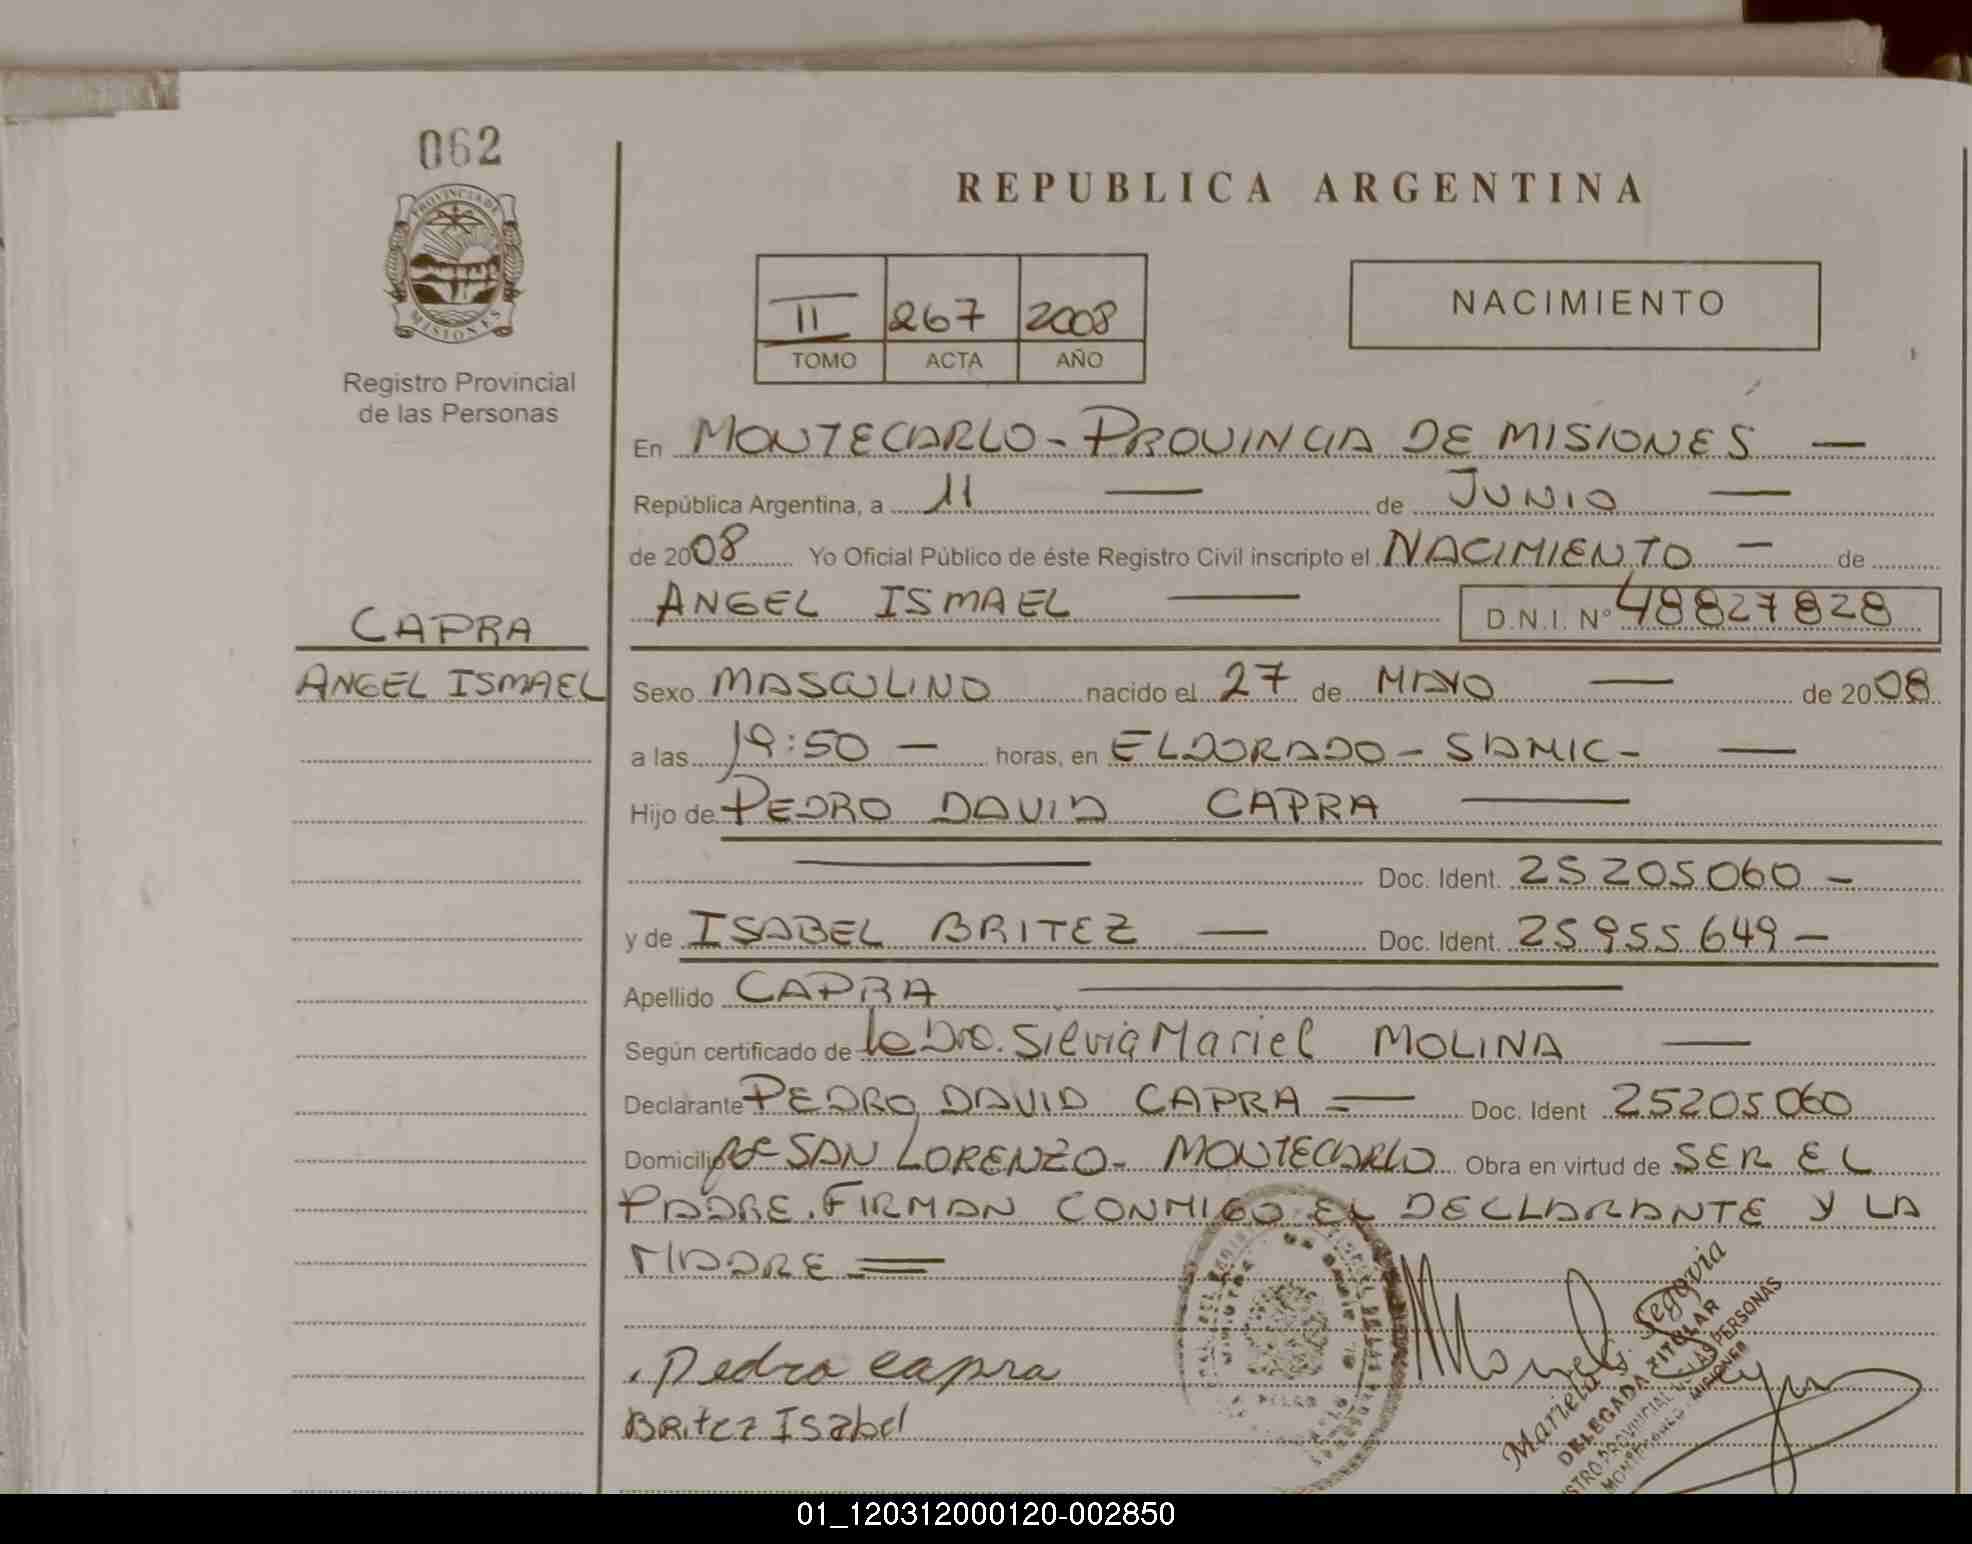 062
PROVINCIA DE
MISIONES
Registro Provincial
de las Personas
CAPRA
ANGEL ISMAEL
REPUBLICA ARGENTINA
II 267 2008
TOMO ACTA AÑO
NACIMIENTO
En MONTECARLO - PROVINCIA DE MISIONES —
República Argentina, a 11 — de JUNIO —
de 2008 Yo Oficial Público de éste Registro Civil inscripto el NACIMIENTO — de
ANGEL ISMAEL — D.N.I. Nº 48827828
Sexo MASCULINO nacido el 27 de MAYO — de 2008
a las 19:50 — horas, en ELDORADO - SAMIC - —
Hijo de PEDRO DAVID CAPRA —
— Doc. Ident. 25205060 -
y de ISABEL BRITEZ — Doc. Ident. 25955649 -
Apellido CAPRA —
Según certificado de la Dra. Silvia Mariel MOLINA —
Declarante PEDRO DAVID CAPRA = Doc. Ident 25205060
Domicilio SAN LORENZO - MONTECARLO Obra en virtud de SER EL
PADRE. FIRMAN CONMIGO EL DECLARANTE Y LA
MADRE =
Pedro capra
Britez Isabel
Mariela S. Segovia
DELEGADA TITULAR
REGISTRO PROVINCIAL DE LAS PERSONAS
MONTECARLO - MISIONES
01_120312000120-002850